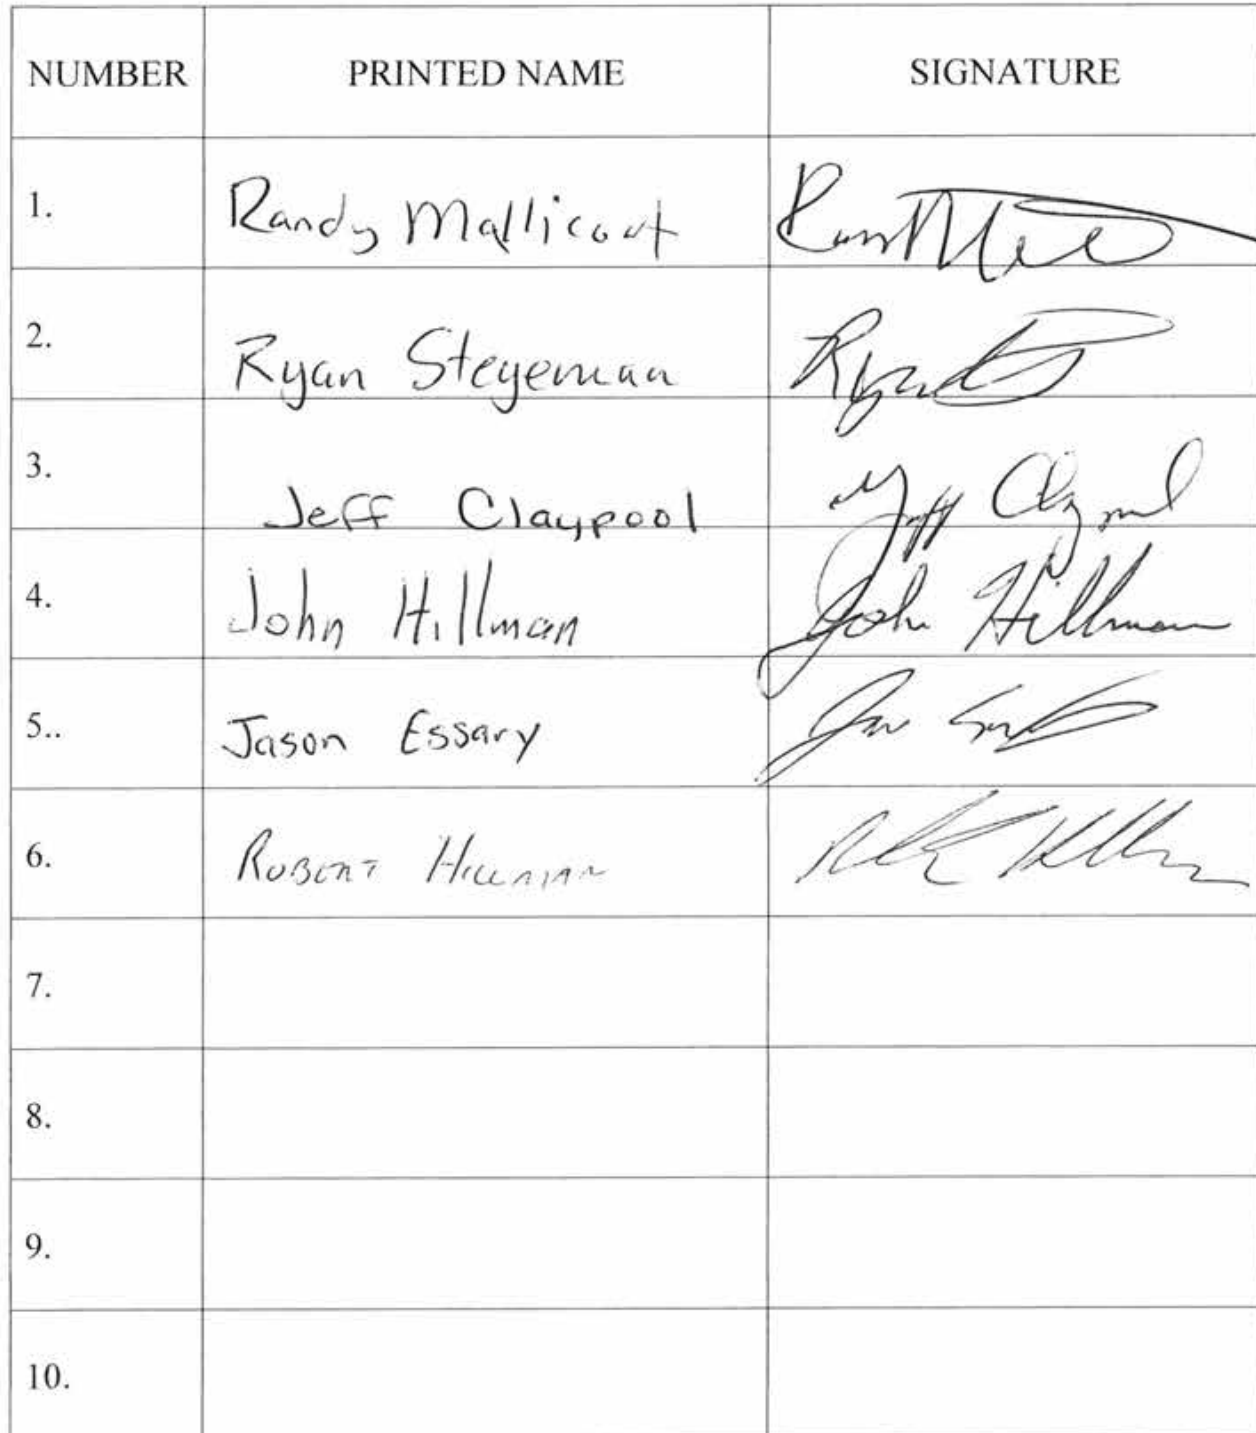 NUMBER PRINTED NAME SIGNATURE
1. Randy Mallicoat
2. Ryan Stegeman
3. Jeff Claypool Jeff Claypool
4. John Hillman John Hillman
5.. Jason Essary
6. ROBERT HILLMAN
7.
8.
9.
10.